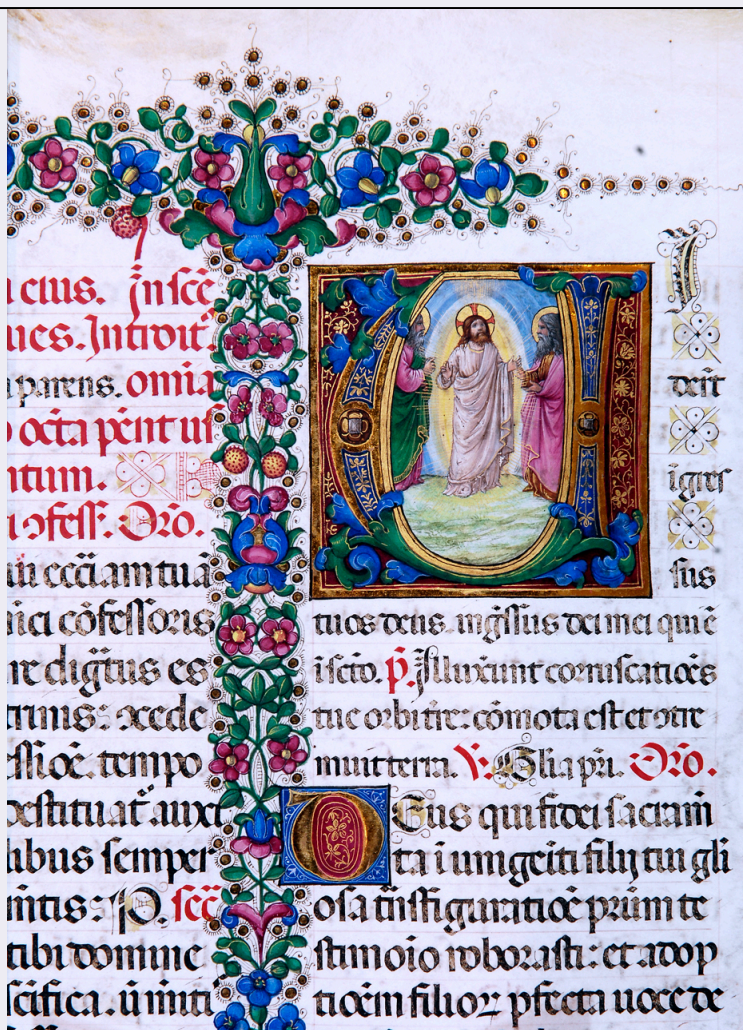 eius. In scē
ues. Introit.
parens. omia
octa pēnt ut
ntum.
ↄfess. Oro.
eccliam tuā
cōfessoris
dignus es
trinis: ↄcede
ssiōe. tempo
destituat auxi
libus semper
P. scē
tibi domine
VI
derūt
īgres
sus
tuos deus. īgressus dei mei qui ē
ī scto. p̄. Illuxerunt coruscatiōes
tue orbi terre: cōmota est et ↄtre
muit terra. V. Glia pri. Oro.
Deus qui fidei sacram̄
ta ī unigeiti filij tui gli
osa trāsfiguratiōe prūm te
stimoio roborasti: et adop
tiōem filioꝝ pfecta uoce de